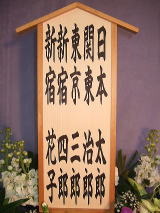 日本 太郎
関東 治郎
東京 三郎
新宿 四郎
新宿 花子